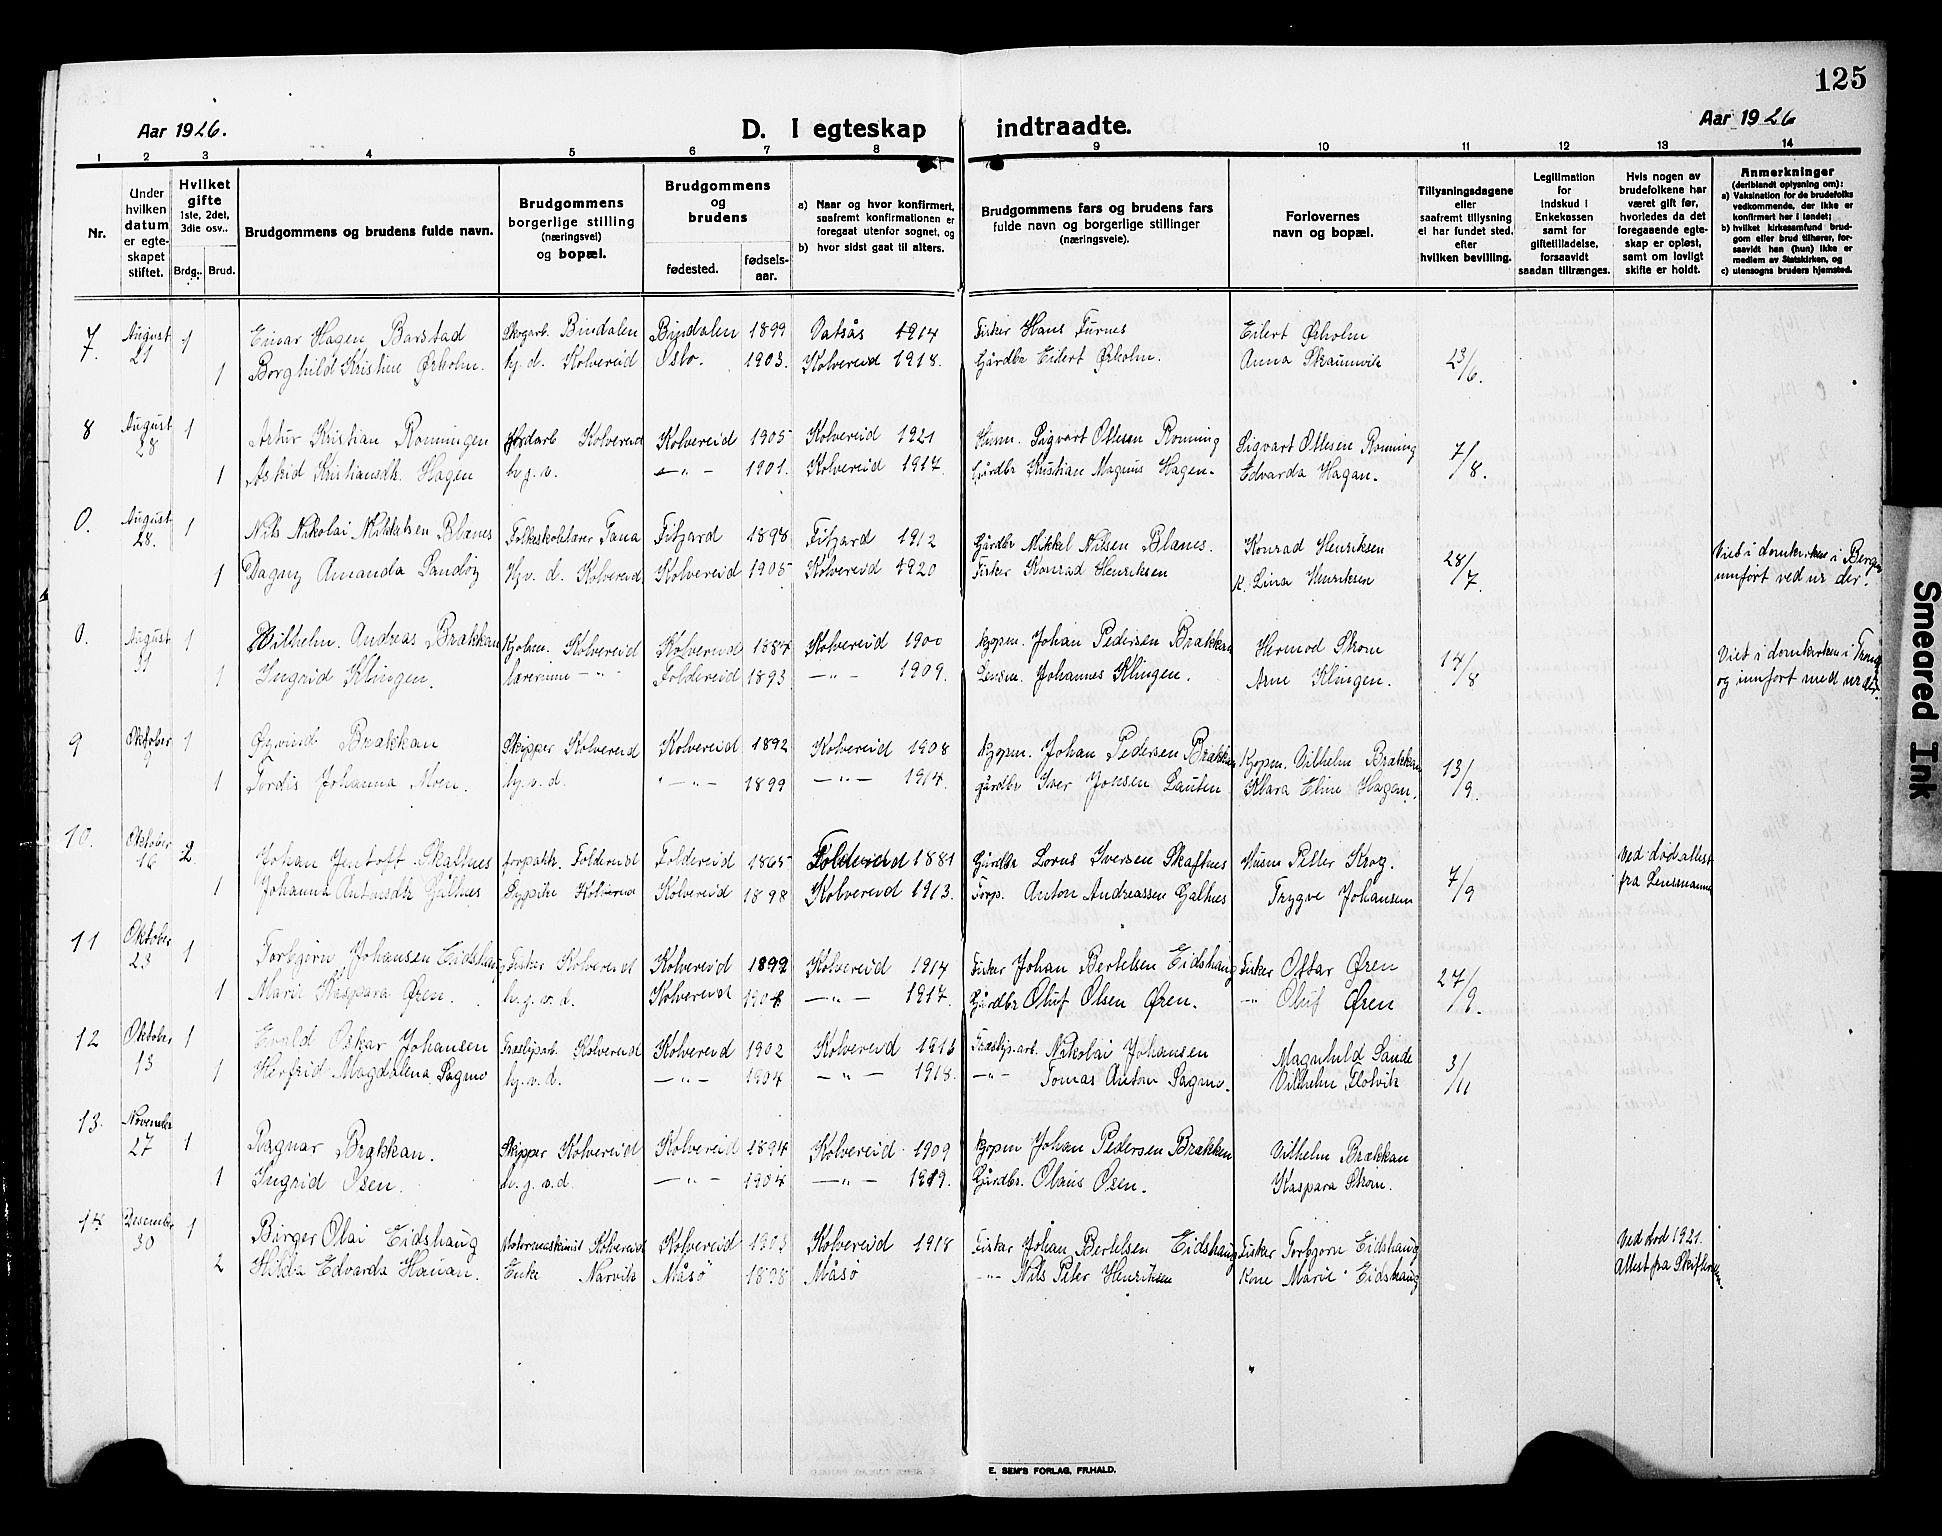 125
Aar 1926.
D. I egteskap indtraadte.
Aar 1926
1 2 3 4 5 6 7 8 9 10 11 12 13 14
Nr.
Under hvilken datum er egteskapet stiftet.
Hvilket gifte 1ste, 2det, 3die osv..
Brdg.. Brud.
Brudgommens og brudens fulde navn.
Brudgommens borgerlige stilling (næringsvei) og bopæl.
Brudgommens og brudens
fødested. fødselsaar.
a) Naar og hvor konfirmert, saafremt konfirmationen er foregaat utenfor sognet, og
b) hvor sidst gaat til alters.
Brudgommens fars og brudens fars fulde navn og borgerlige stillinger (næringsveie).
Forlovernes navn og bopæl.
Tillysningsdagene eller saafremt tillysning ei har fundet sted, efter hvilken bevilling.
Legitimation for indskud i Enkekassen samt for giftetilladelse, forsaavidt saadan tiltrænges.
Hvis nogen av brudefolkene har været gift før, hvorledes da det foregaaende egteskap er opløst, samt om lovligt skifte er holdt.
Anmerkninger (deriblandt oplysning om): a) Vaksination for de brudefolks vedkommende, der ikke er konfirmert her i landet; b) hvilket kirkesamfund brudgom eller brud tilhører, forsaavidt han (hun) ikke er medlem av Statskirken, og c) utensogns bruders hjemsted.
7. August 21 1 Einar Hagen Barstad Skogarb. Bindalen Bindalen 1899 Vatsås 1914 Fisker Hans Furnes Eilert Ørholm 23/6.
1 Borghild Kristine Ørholm. hj. d. Kolvereid Oslo. 1903. Kolvereid 1918. Gårdbr Eilert Ørholm. Anna Skaumvik
8 August 28 1 Artur Kristian Romingen Jordarb Kolvereid Kolvereid 1905 Kolvereid 1921 Husm. Sigvart Ottesen Roming Sigvart Ottesen Roming 7/8.
1 Astrid Kristiansdtr. Hagen h. j. v. —"— 1901. Kolvereid 1917. Gårdbr Kristian Magnus Hagen. Edvarda Hagan.
0. August 28. 1 Nils Nikolai Mikkelsen Blanes Folkeskolelærer Tana Fitjard 1898 Fitjard 1912 Gårdbr Mikkel Nilsen Blanes. Konrad Henriksen 28/7. Viet i domkirken i Bergen
1 Dagny Amanda Sandøy Hjv. d. Kolvereid Kolvereid 1905 Kolvereid 1920 Fisker Konrad Henriksen K. Lina Henriksen innført ved ur der.
0. August 31 1 Vilhelm. Andreas Brækkan Kjøbm. Kolvereid Kolvereid 1884 Kolvereid 1900 kjøpm. Johan Pedersen Brækkan Hermod Strom 14/8 Viet i domkirken i Trond
1 Ingrid Klingen. lærerinne —"— Foldereid 1893 —"— 1909. Lensm. Johannes Klingen. Arne Klingen. og innført med ur
9 Oktober 9 1 Øyvind Brækkan Skipper Kolvereid Kolvereid 1892 Kolvereid 1908 kjøpm. Johan Pedersen Brækkan Kjøpm. Vilhelm Brækkan 13/9.
1 Tordis Johanna Moen. hj. v. d. —"— 1899 —"— 1914. gårdbr Iver Johsen Lauten Klara Eline Hagen.
10. Oktober 16 2. Johan Jentoft Skaftnes forpakt. Foldereid Foldereid 1865 Foldereid 1881 Gårdbr Lorns Iversen Skaftnes Husm Petter Krog. 7/9 Ved død attest
1 Johanna Antonsdtr Galtnes Sypike Kolvereid Kolvereid 1898 Kolvereid 1913. Forp. Anton Andreassen Galtnes Trygve Johansen fra Lensmannen
11 Oktober 23 1 Torbjørn Johansen Eidshaug Fisker Kolvereid Kolvereid 1892 Kolvereid 1914 Fisker Johan Bertelsen Eidshaug Fisker Ottar Øren 27/9.
1 Marie Kaspara Øren. h. j. v. d. Kolvereid 1904 —"— 1917. Gårdbr Oluf Olsen Øren. —"— Oluf Øren
12 Oktober 13 1 Evald Oskar Johansen Træsliparb. Kolvereid Kolvereid 1902 Kolvereid 1916 Træslip.arb. Nikolai Johansen Magnhild Sande 3/11
1 Herfrid Magdalena Sagmo hj. v. d. —"— 1904 —"— 1918. —"— Tomas Anton Sagmo. Vilhelm Flotvik
13. November 27 1 Ragnar Brækkan. Skipper Kolvereid Kolvereid 1894 Kolvereid 1909 kjøpm Johan Pedersen Brækken Vilhelm Brækkan
1 Ingrid Osen. h. j. v. d. —"— 1904 —"— 1919. Gårdbr. Olaus Osen. Kaspara Strøm.
14. Desember 30 1 Birger Olai Eidshaug Motormaskinist Kolvereid Kolvereid 1903 Kolvereid 1918 Fisker Johan Bertelsen Eidshaug Fisker Torbjørn Eidshaug Ved død 1921.
2 Hilda Edvarda Hauan. Enke Narvik Måsø 1898 Måsø —"— Nils Peter Henriksen Kone Marie Eidshaug Attest fra Skifteretten
E. SEM'S FORLAG, FR.HALD.
Smeared Ink